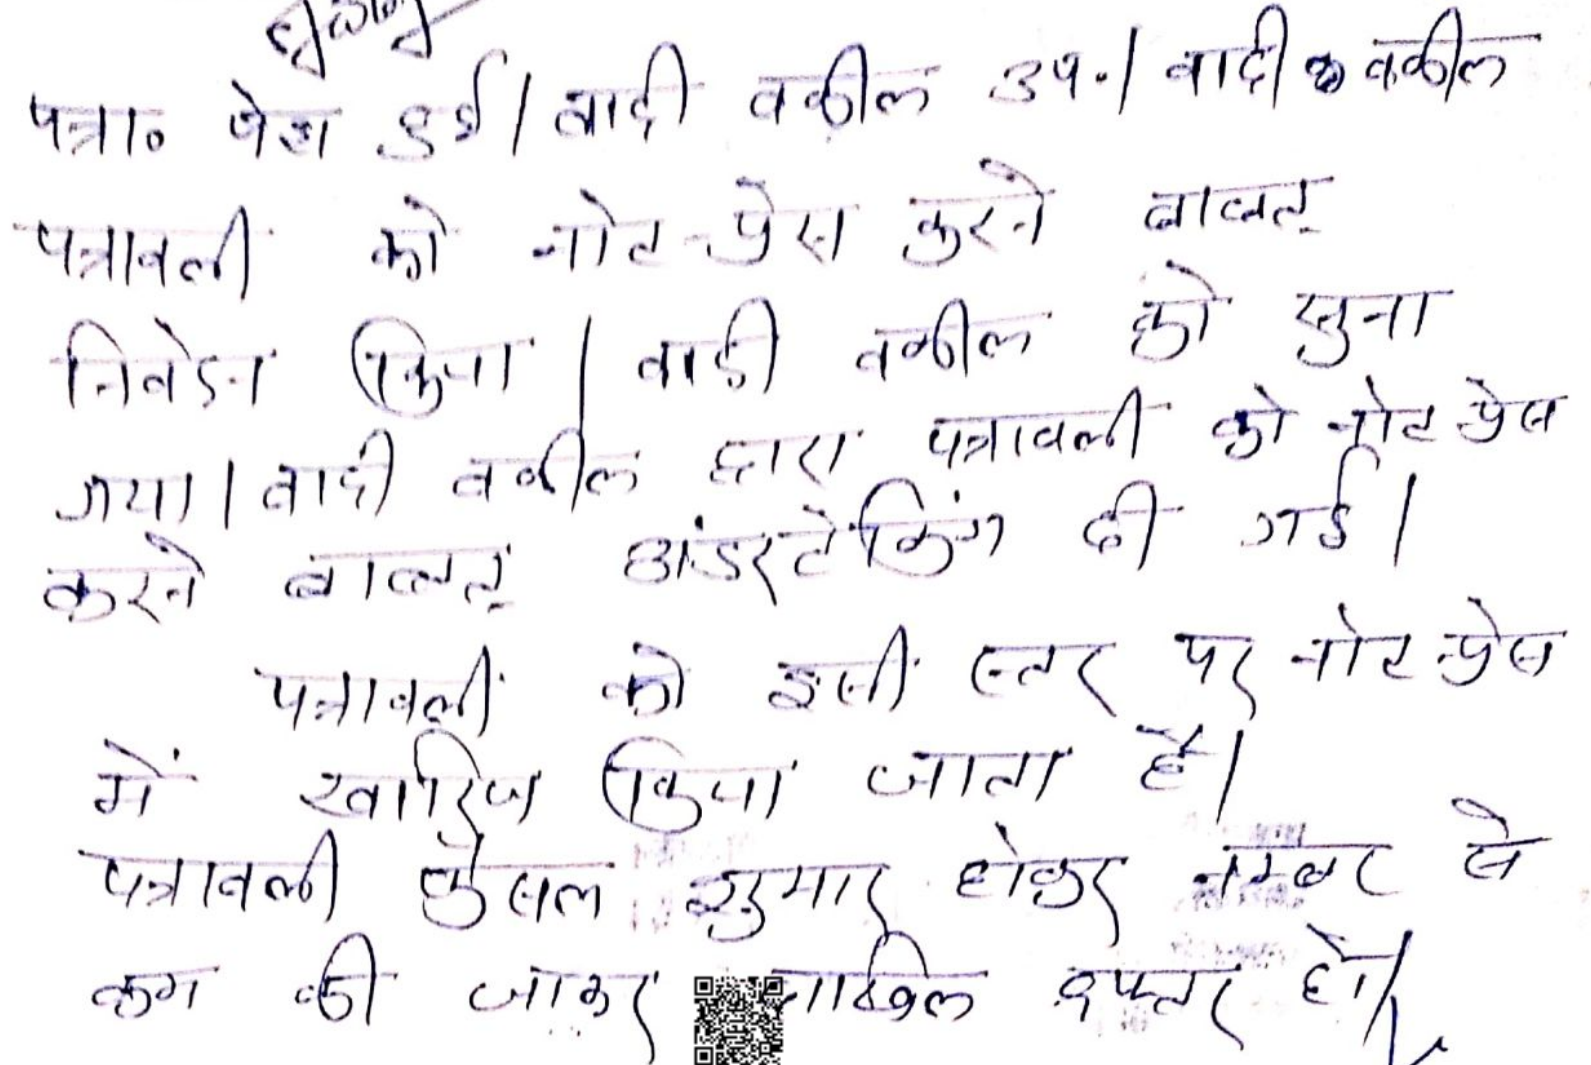 पत्रा० पेश हुई। वादी वकील उप.। वादी वकील
पत्रावली को नोट-प्रेस करने बाबत्
निवेदन किया। वादी वकील को सुना
गया। वादी वकील द्वारा पत्रावली को नोट प्रेस
करने बाबत् अंडरटेकिंग दी गई।
पत्रावली को इसी स्तर पर नोट-प्रेस
में खारिज किया जाता है।
पत्रावली फैसल शुमार होकर नम्बर से
कम की जाकर दाखिल दफ्तर हो।